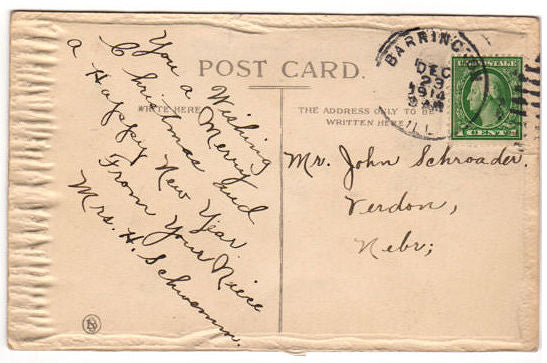 POST CARD.
WRITE HERE
THE ADDRESS ONLY TO BE
WRITTEN HERE
Wishing
You a Merry
Christmas and
a Happy New Year
From Your Niece
Mrs. H. Schwemm.
BARRING
DEC
23
1914
8 AM
ILL.
U.S. POSTAGE
1 CENT 1
Mr. John Schroader.
Verdon,
Nebr;